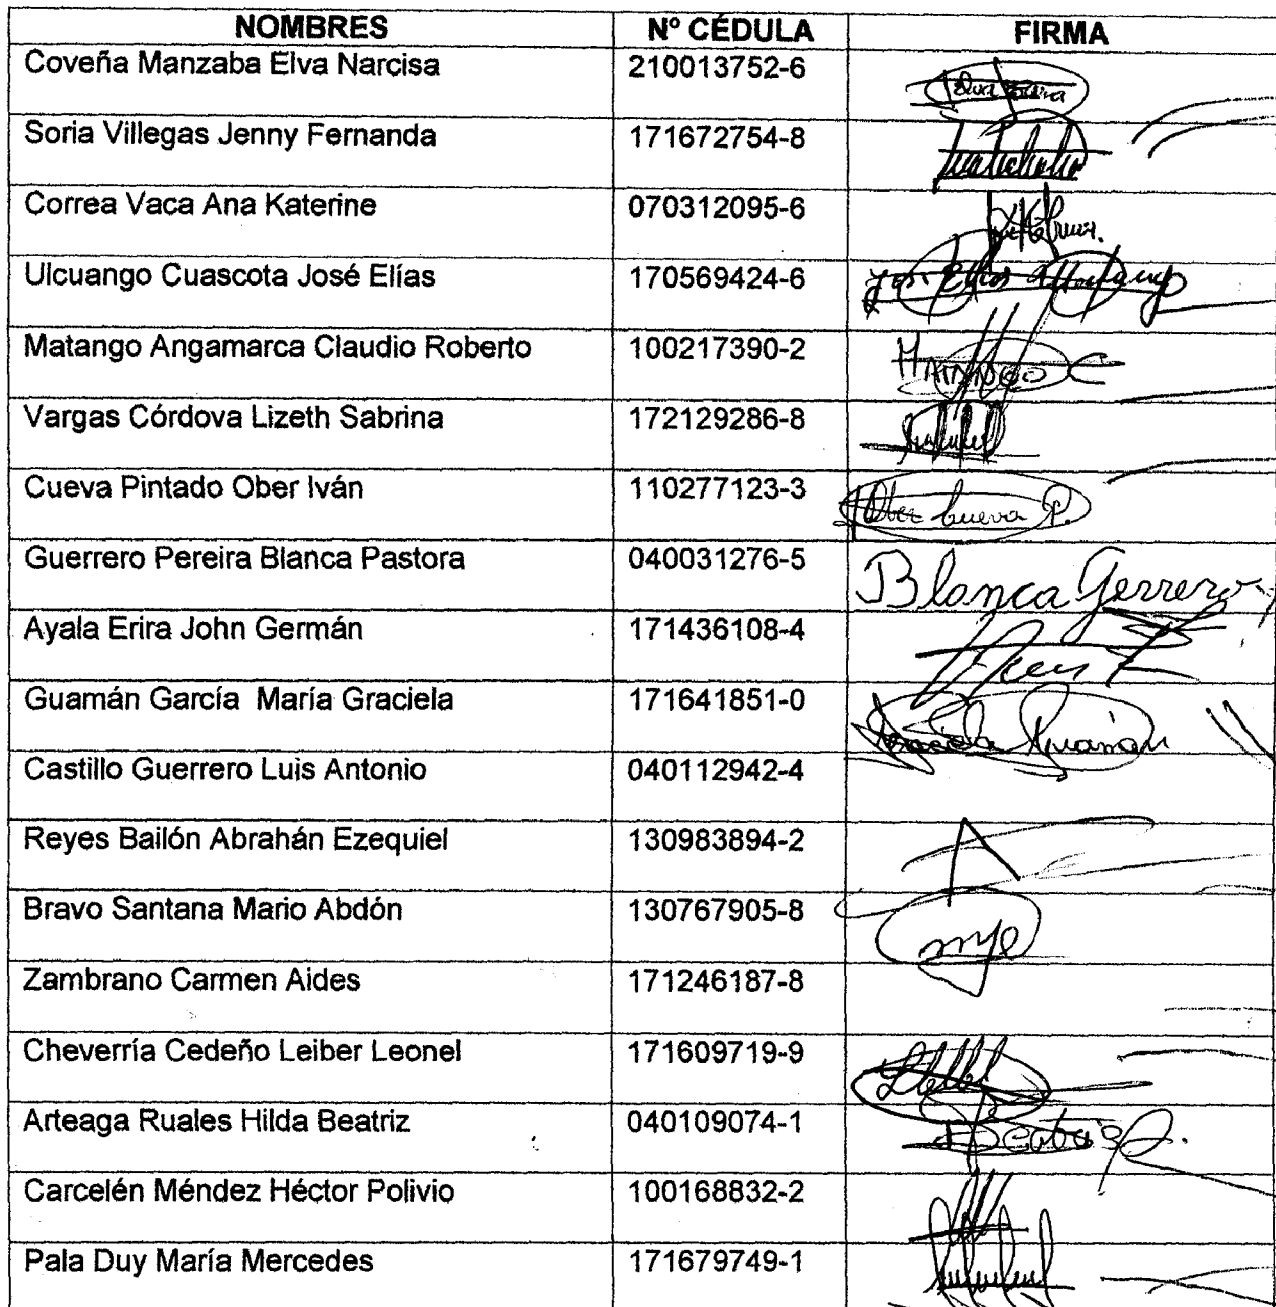 NOMBRES Nº CÉDULA FIRMA
Coveña Manzaba Elva Narcisa 210013752-6
Soria Villegas Jenny Fernanda 171672754-8
Correa Vaca Ana Katerine 070312095-6
Ulcuango Cuascota José Elías 170569424-6
Matango Angamarca Claudio Roberto 100217390-2
Vargas Córdova Lizeth Sabrina 172129286-8
Cueva Pintado Ober Iván 110277123-3 Ober Cueva P.
Guerrero Pereira Blanca Pastora 040031276-5 Blanca Gerrero
Ayala Erira John Germán 171436108-4
Guamán García María Graciela 171641851-0 Graciela Guamán
Castillo Guerrero Luis Antonio 040112942-4
Reyes Bailón Abrahán Ezequiel 130983894-2
Bravo Santana Mario Abdón 130767905-8
Zambrano Carmen Aides 171246187-8
Cheverría Cedeño Leiber Leonel 171609719-9
Arteaga Ruales Hilda Beatriz 040109074-1
Carcelén Méndez Héctor Polivio 100168832-2
Pala Duy María Mercedes 171679749-1